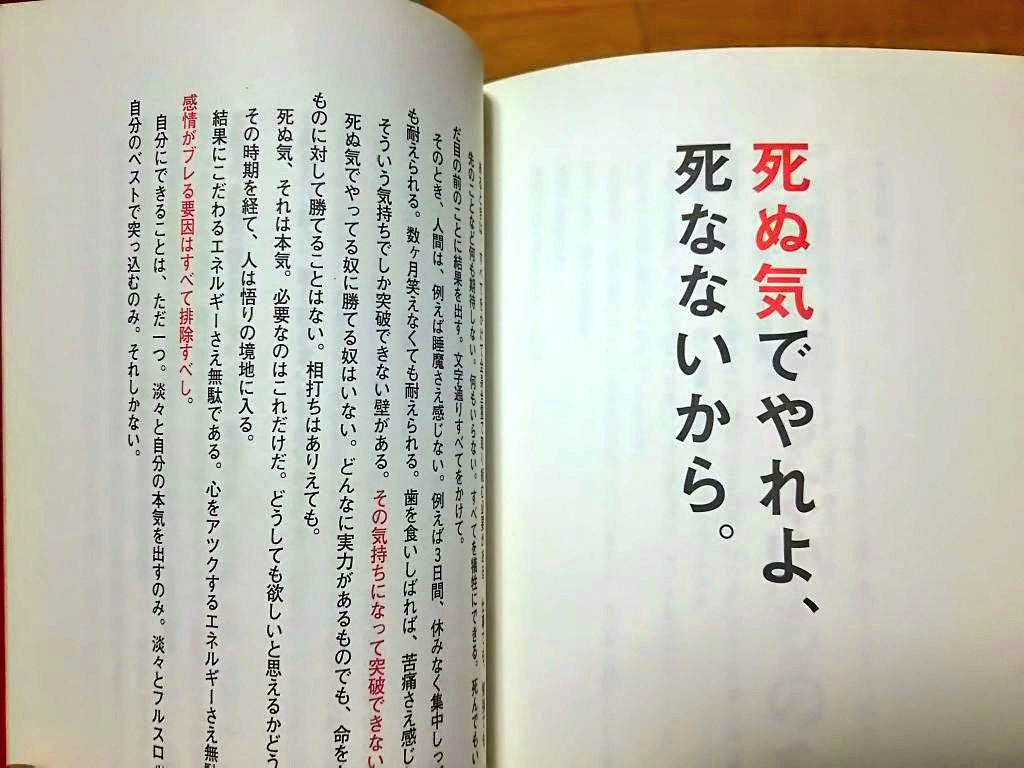 死ぬ気でやれよ、
死なないから。
先のことなど何も期待しない。何もいらない。すべてを犠牲にできる。死んでもい
だ目の前のことに結果を出す。文字通りすべてをかけて。
そのとき、人間は、例えば睡魔さえ感じない。例えば3日間、休みなく集中しっ
も耐えられる。数ヶ月笑えなくても耐えられる。歯を食いしばれば、苦痛さえ感じ
そういう気持ちでしか突破できない壁がある。その気持ちになって突破できない
死ぬ気でやってる奴に勝てる奴はいない。どんなに実力があるものでも、命を
ものに対して勝てることはない。相打ちはありえても。
死ぬ気、それは本気。必要なのはこれだけだ。どうしても欲しいと思えるかどう
その時期を経て、人は悟りの境地に入る。
結果にこだわるエネルギーさえ無駄である。心をアツクするエネルギーさえ無駄
感情がブレる要因はすべて排除すべし。
自分にできることは、ただ一つ。淡々と自分の本気を出すのみ。淡々とフルスロ
自分のベストで突っ込むのみ。それしかない。